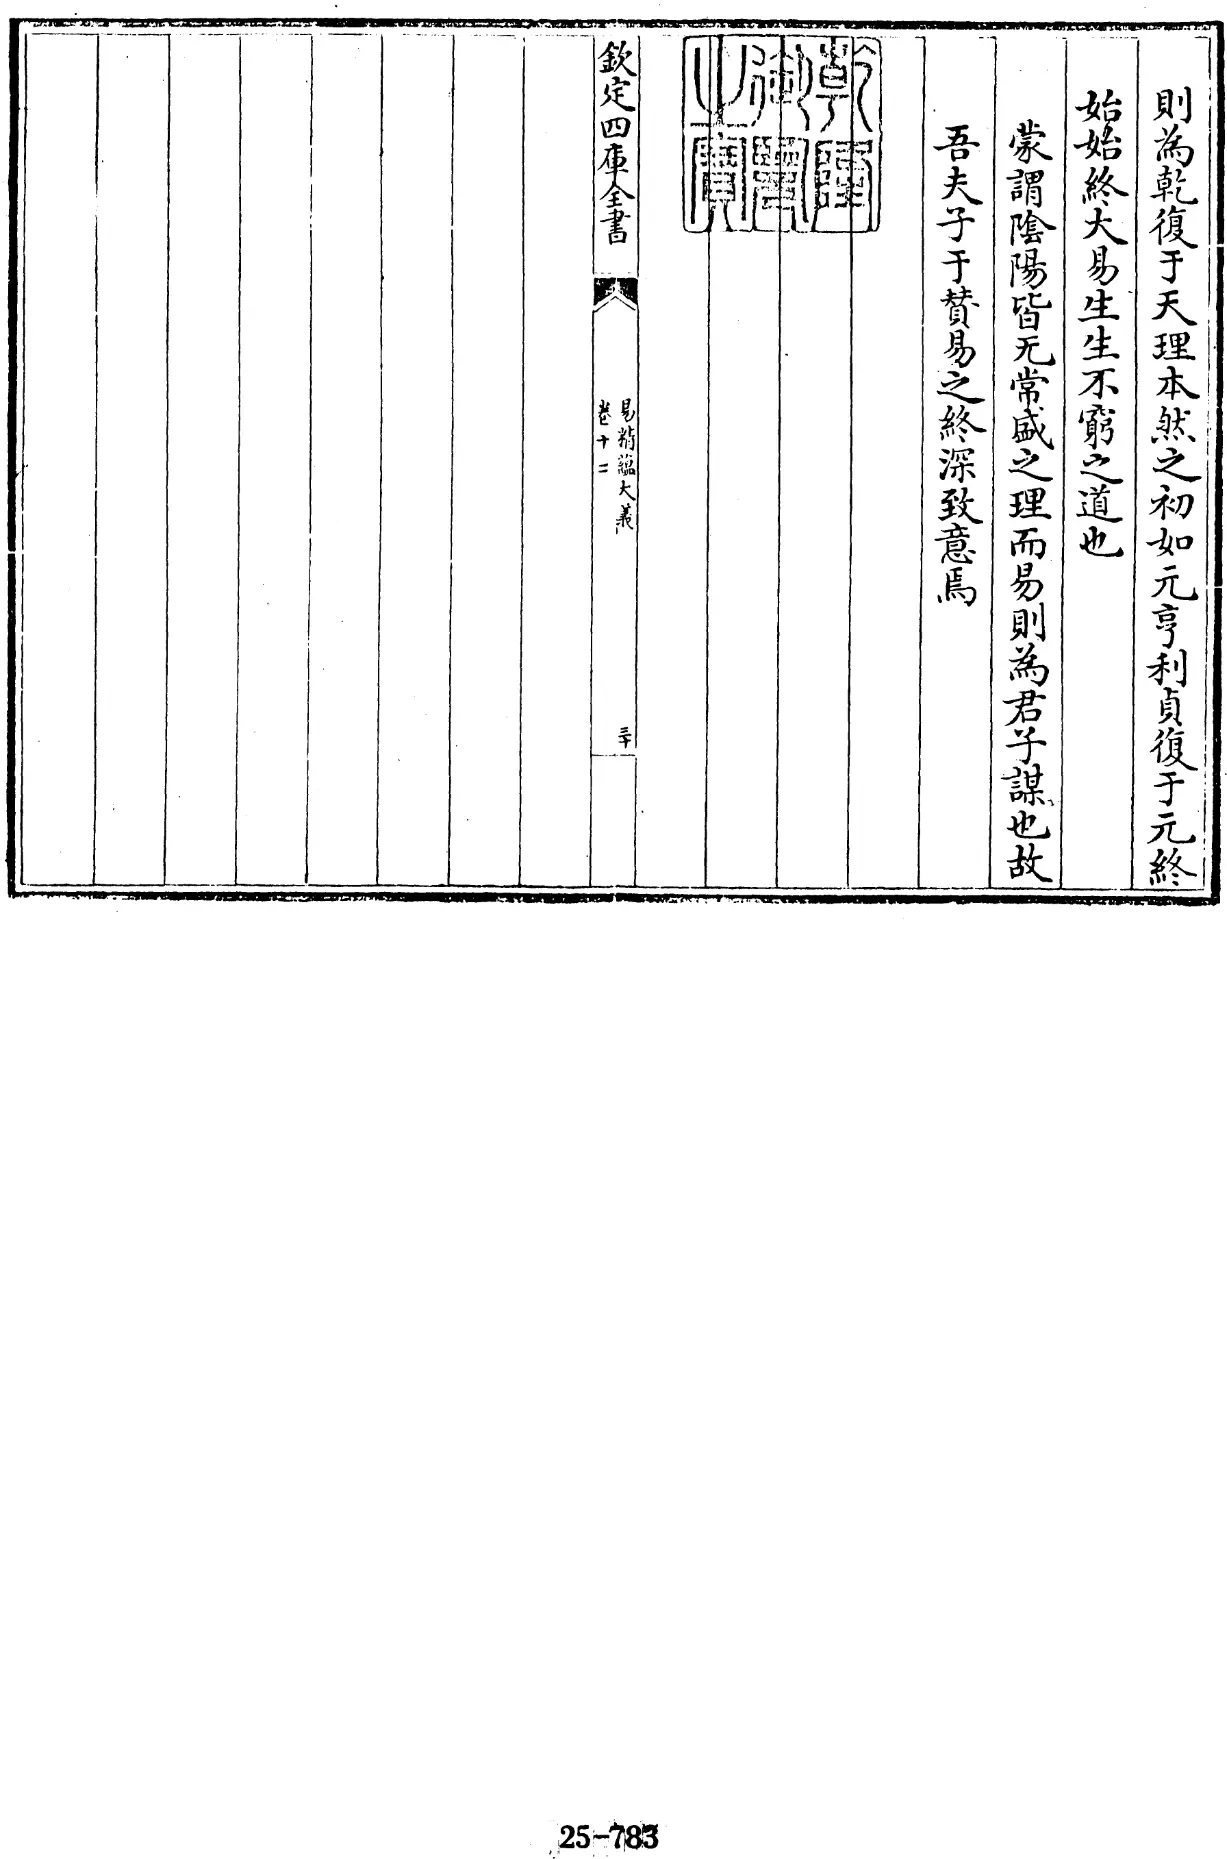 則為乾復于天理本然之初如元亨利貞復于元終
始始終大易生生不窮之道也
蒙謂陰陽皆无常盛之理而易則為君子謀也故
吾夫子于贊易之終深致意焉
乾隆御覽之寶
欽定四庫全書
易精蘊大義
卷十二
三十
25-783